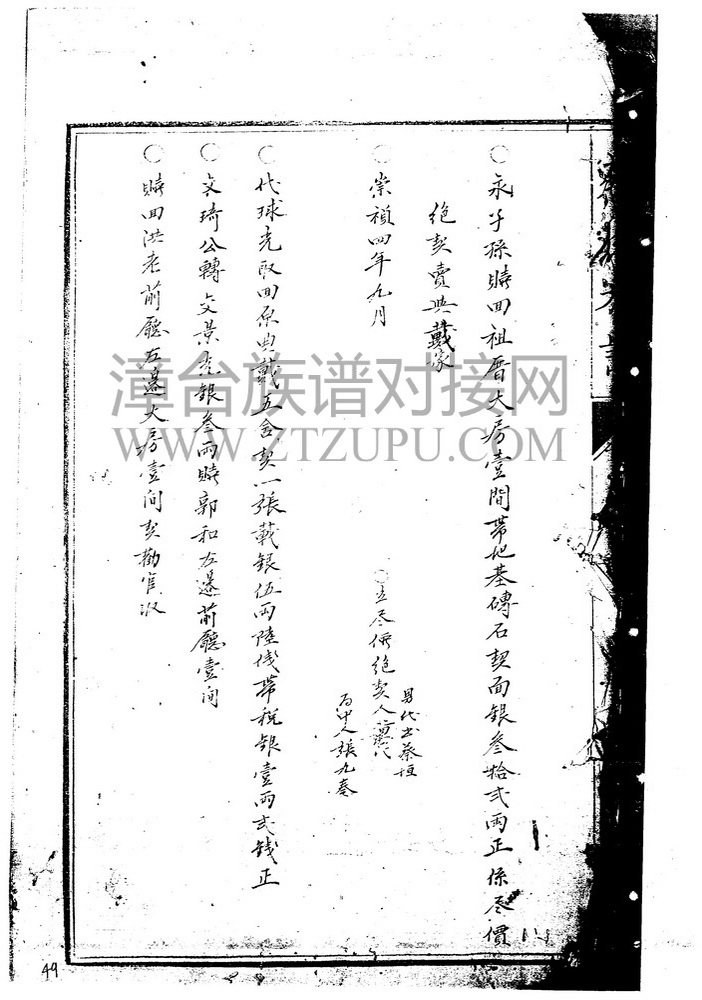 ○ 永子孫贖回祖厝大房壹間帶地基磚石契面銀叁拾弍兩正係盡價
絶契賣與戴家
○ 崇禎四年九月
○ 立尽價絶契人
男代書蔡恒
為中人張九奏
○ 代球光取回原典戴五舍契一張載銀伍兩陸銭帶税銀壹兩弍銭正
○ 文琦公轉文景光銀叁兩贖郭和左邊前廳壹间
○ 贖回洪老前廳左邊大房壹间契勸官収
漳台族谱对接网
WWW.ZTZUPU.COM
49